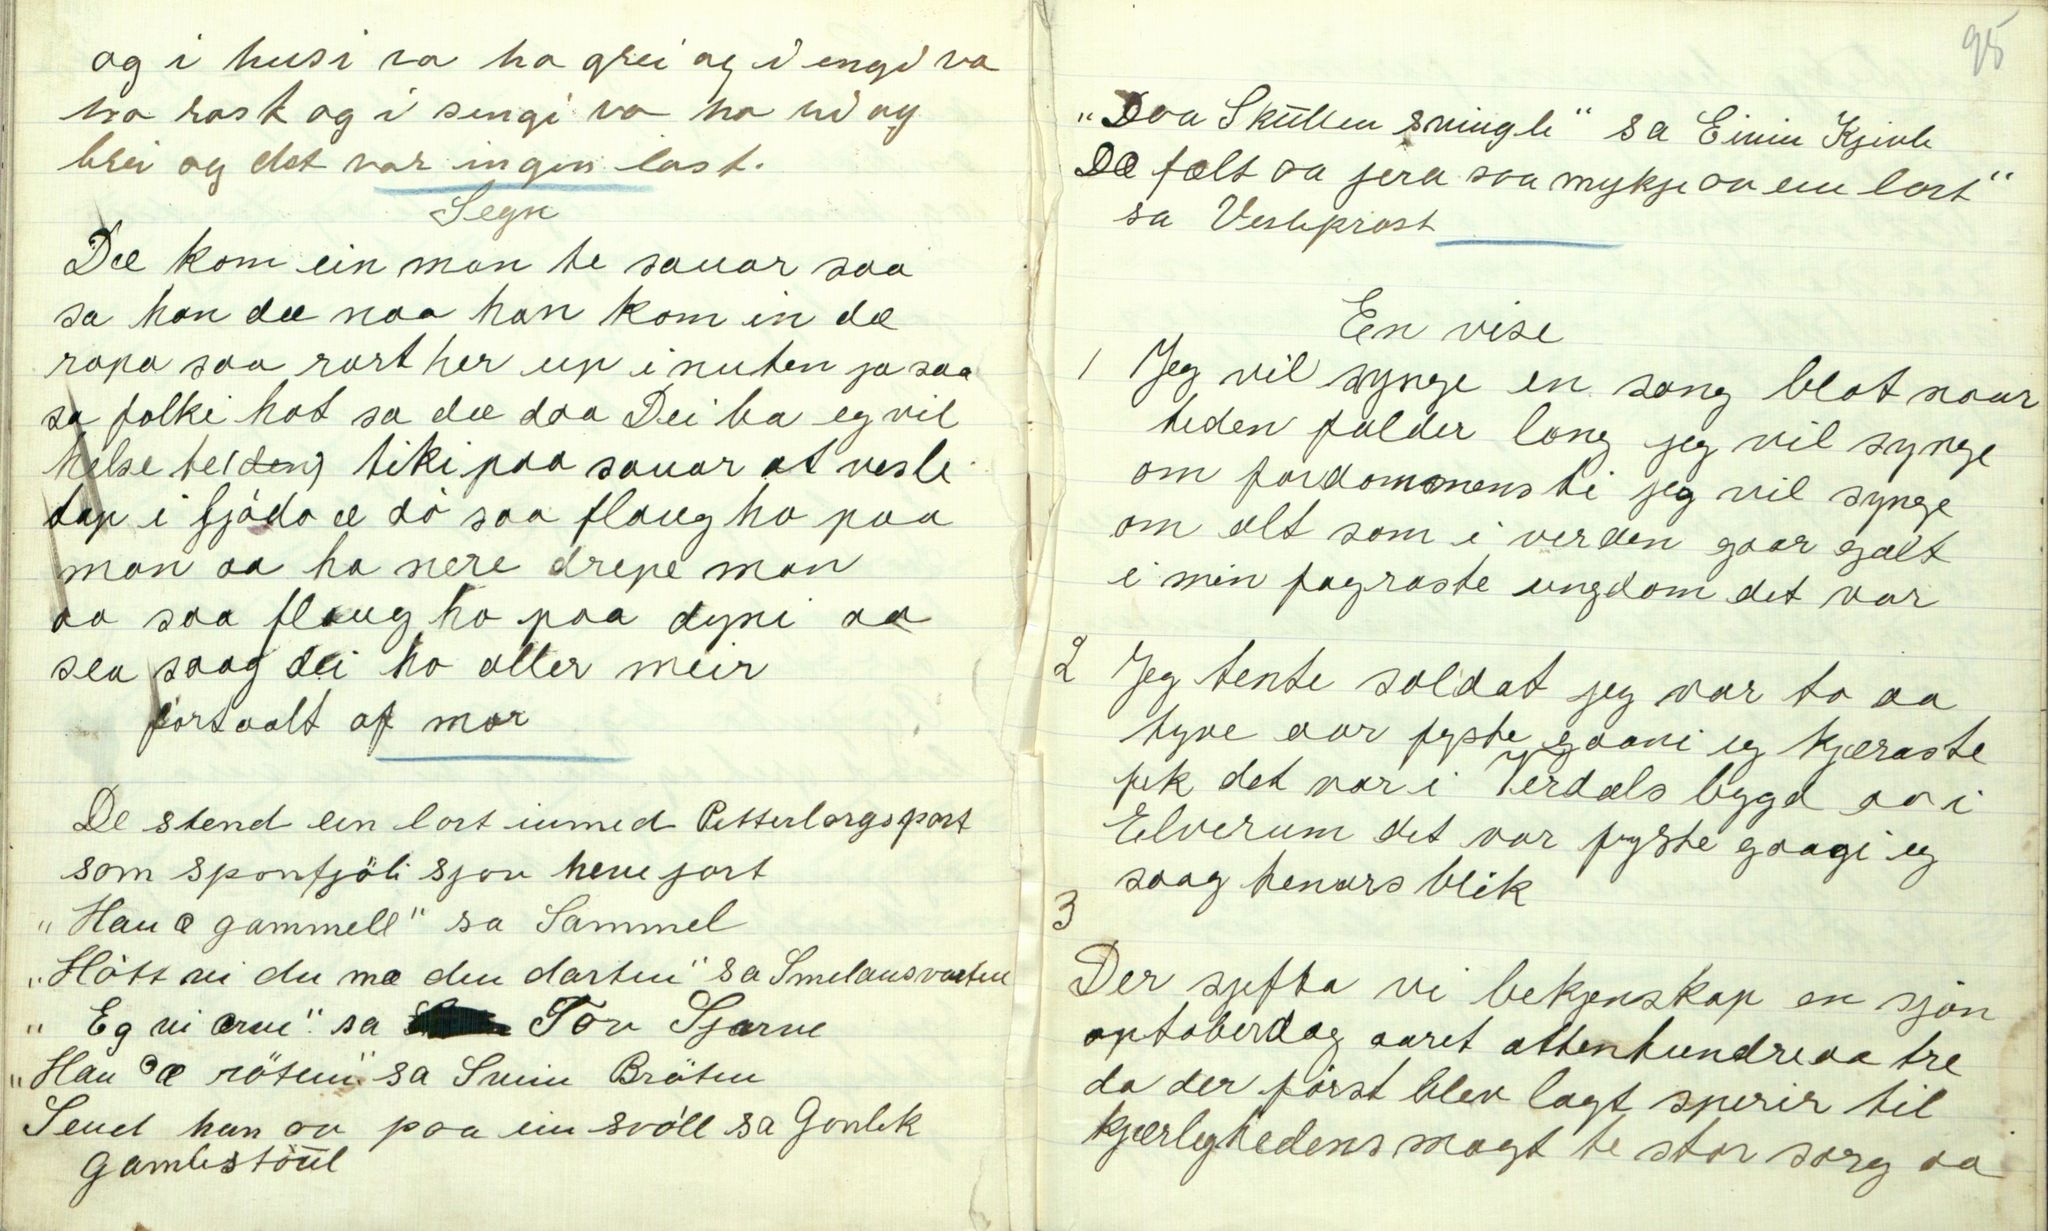 og i husi va ho grei og i engi va
ho rask og i sengi va ho ui og
brei og det var ingen last.
Segn
Dæ kom ein man te sauar saa
sa han dæ naa han kom in dæ
ropa saa rart her up i nuten ja saa
sa folki hot sa dæ daa Dei ba eg vil
helse te (den) tiki paa sauar at vesle
tap i fjödo æ dö saa flaug ho paa
man aa ho nere drepe man
aa saa flaug ho paa dyni aa
sea saag dei ho aller meir
fortaalt af mor
De stend ein lort inmed Petterborgsport
som sponfjöli sjøu heve jort
"Han æ gammell" sa Sammel
"Hött vi du mæ den darten" sa Smelansvarten
"Eg vi ærve" sa Tov Sjarve
"Han æ röten" sa Svein Bröten
Send han ov paa ein svöll sa Gonlek
Gamlestöul
95
"Doa Skullen svingle" sa Eivin Kjivle
Dæ fælt aa jera saa mykje av ein lort"
sa Vesleprost
En vise
1 Jeg vil synge en sang blot naar
tiden falder lang jeg vil synge
om fordommens ti jeg vil synge
om alt som i verden gaar galt
i min fagraste ungdom det var
2 Jeg tente soldat jeg var to aa
tyve aar fyste gaani eg kjæraste
fek det var i Verdals bygd aa i
Elverum det var fyste gaagi eg
saag henars blik
3
Der sjefta vi bekjenskap en sjön
optoberdag aaret attenhundreaa tre
da der först blev lagt sperir til
kjærlighedens magt te stor sorg aa